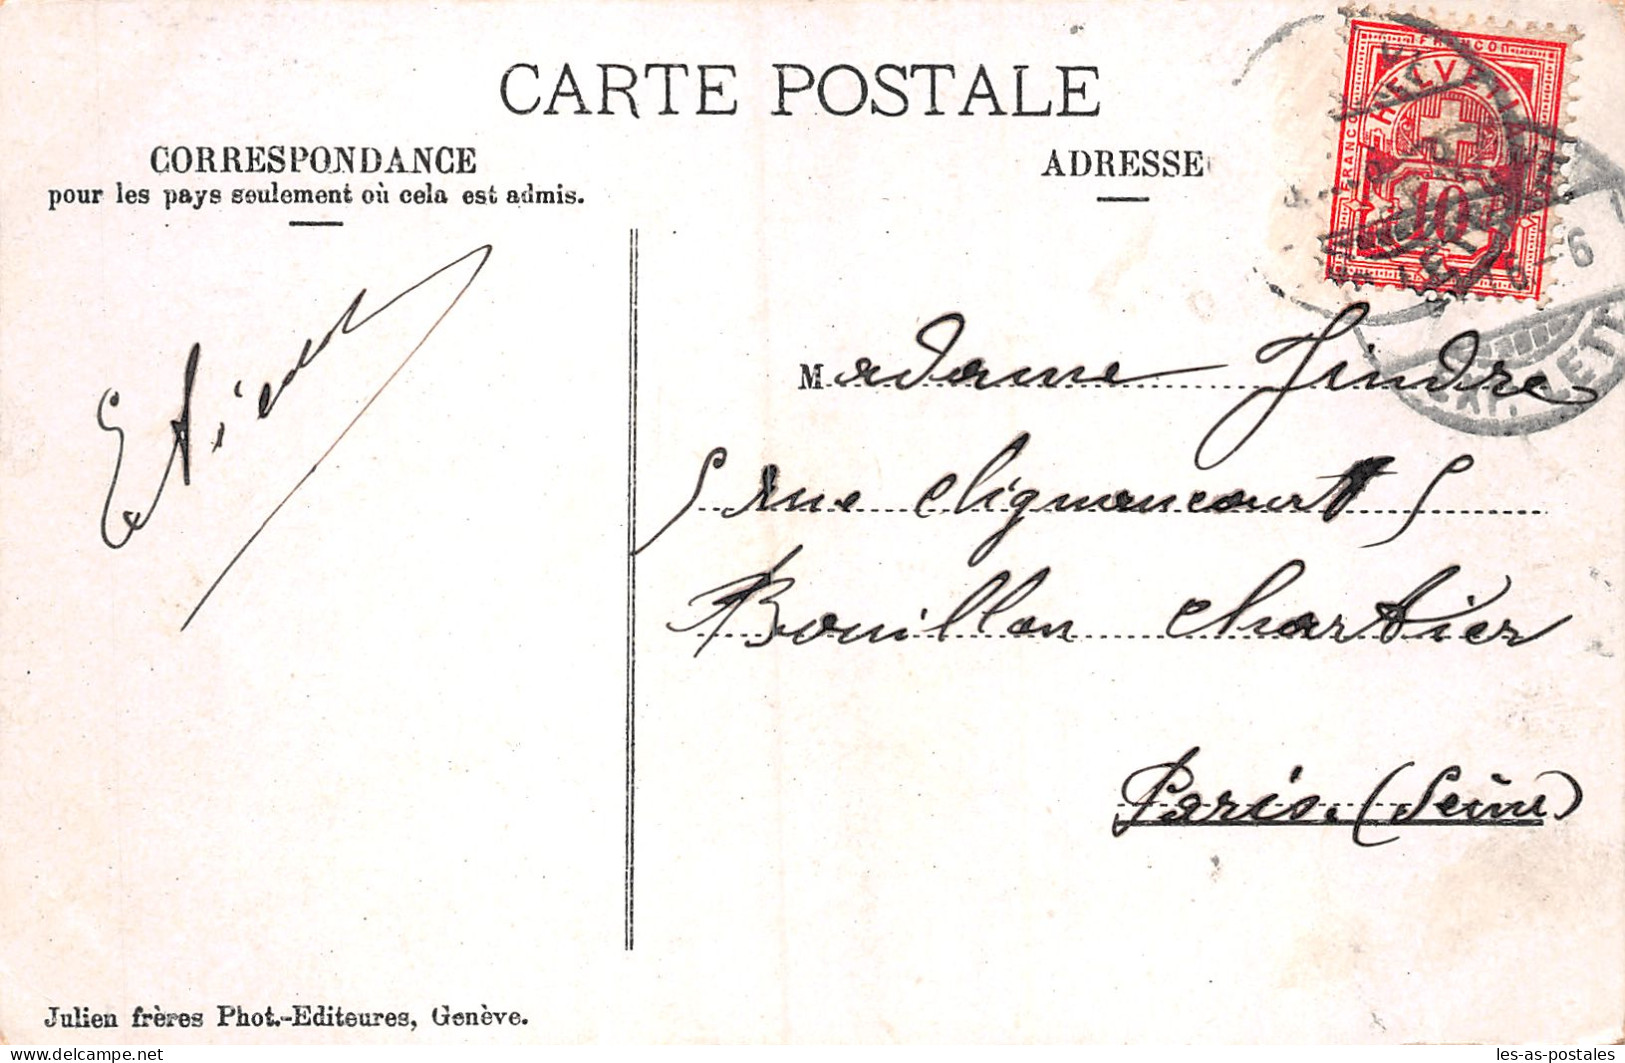 CARTE POSTALE
CORRESPONDANCE
pour les pays seulement où cela est admis.
ADRESSE
FRANCO
FRANCO
HELVETIA
10
6
EXP. LETT
Etienne
Madame Jindre
5 rue Clignancourt 5
Bouillon Chartier
Paris. (Seine)
Julien frères Phot.-Editeures, Genève.
les-as-postales